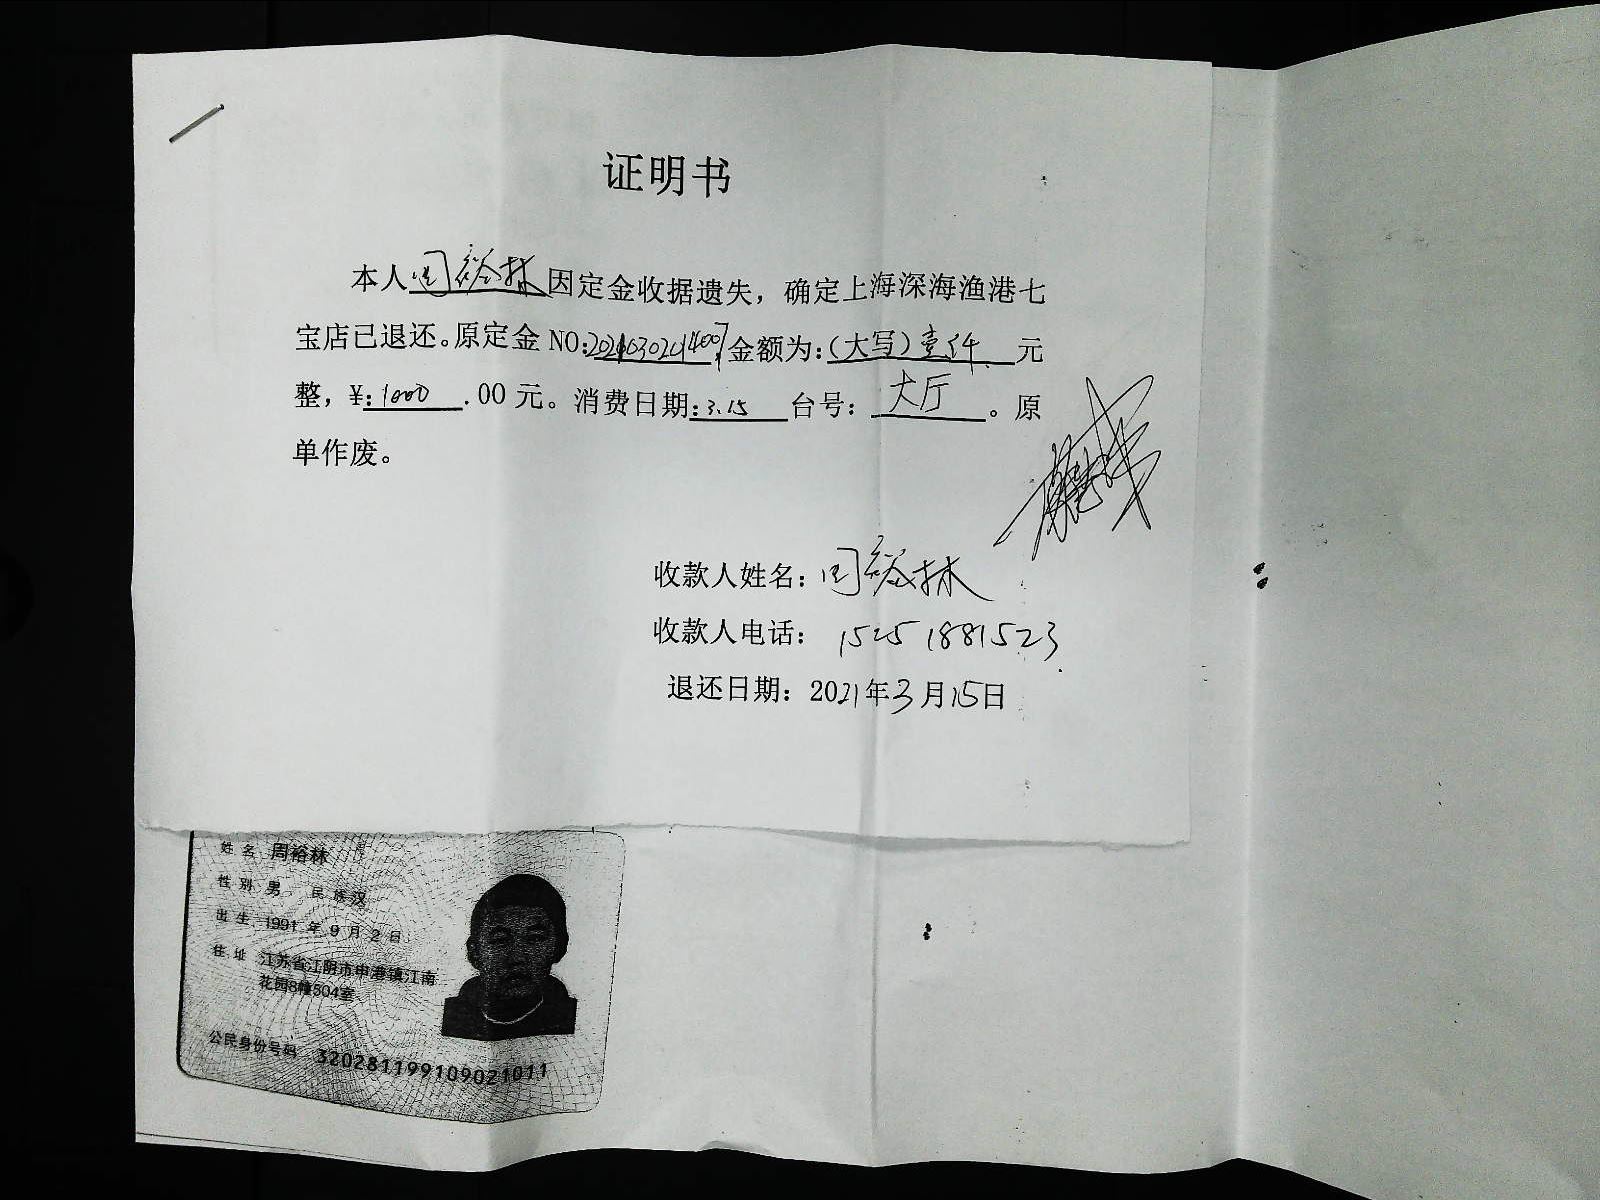 证明书
本人周裕林因定金收据遗失，确定上海深海渔港七
宝店已退还。原定金NO:20210302014007金额为:(大写)壹仟元
整，¥:1000.00元。消费日期:3.15台号：大厅。原
单作废。
收款人姓名：周裕林
收款人电话：15251881523
退还日期：2021年3月15日
姓名 周裕林
性别 男 民族 汉
出生 1991年9月2日
住址 江苏省江阴市申港镇江南
花园8幢504室
公民身份号码 320281199109021011